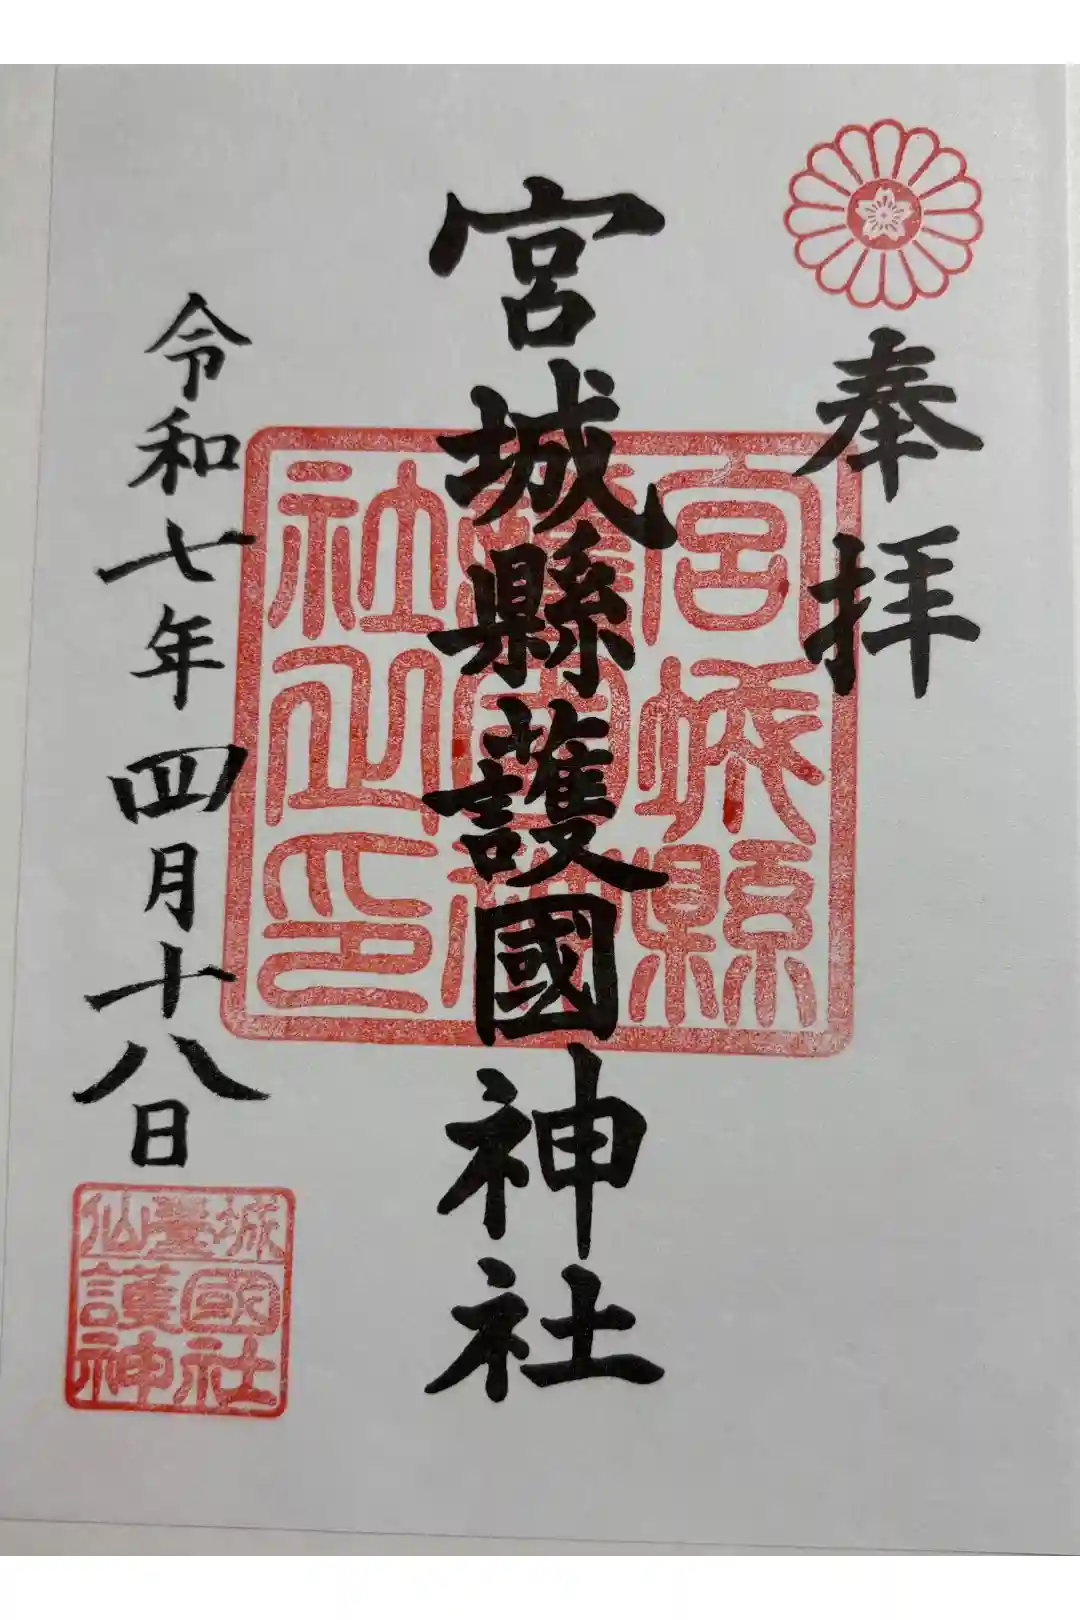 奉拝
宮城縣護國神社
宮城縣
護國神
社之印
令和七年四月十八日
仙臺城
護國
神社